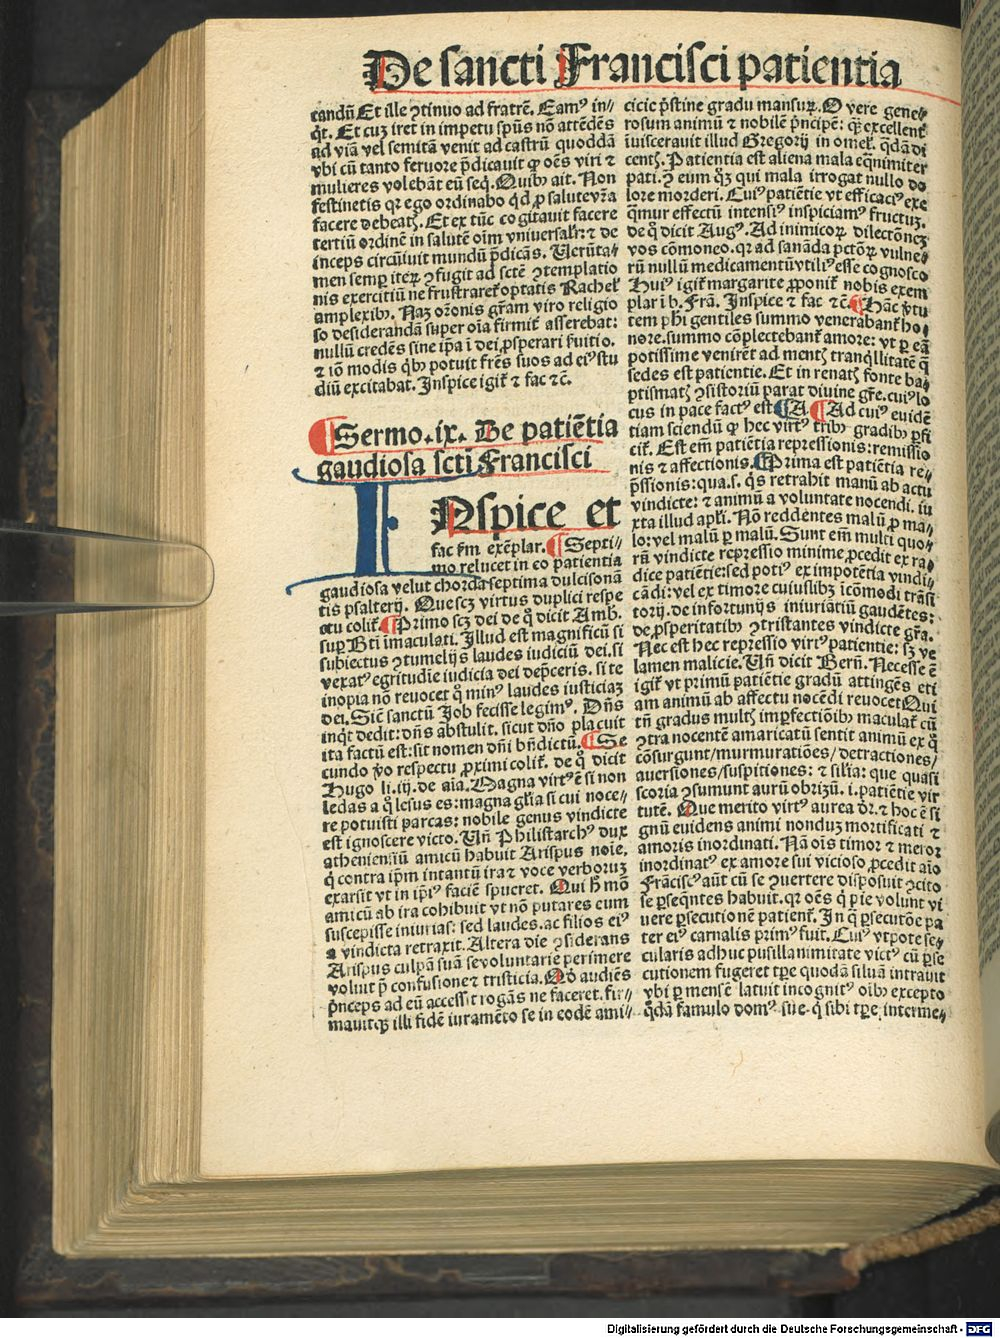 De sancti Francisci patientia
eandū Et ille ꝯtinuo ad fratrē. Eamꝰ in⸗
qͥt. Et cuꝫ iret in impetu spūs nō attēdēs
ad viā vel semitā venit ad castrū quoddā
vbi cū tanto feruore p̄dicauit ꝙ oēs viri ⁊
mulieres volebāt eū seq̄. Quibꝰ ait. Non
festinetis qꝛ ego ordinabo qͥd ꝓ salute vr̄a
facere debeatꝭ. Et ex tūc cogitauit facere
tertiū ordinē in salutē oīm vniuersalr̄: ⁊ de
inceps circūiuit mundū p̄dicās. Verūta⸗
men semꝑ iteꝝ ꝯfugit ad sctē ꝯtemplatio
nis exercitiū ne frustraret᷑ optatis Rachel᷑
amplexibꝰ. Naꝫ or̄onis gr̄am viro religio
so desiderandā super oīa firmit᷑ asserebat:
nullū credēs sine ip̄a ī dei ꝓsperari ẜuitio.
⁊ iō modis qͥbꝰ potuit fr̄es suos ad eiꝰ stu
diū excitabat. Inspice igit᷑ ⁊ fac ⁊c̄.
¶ Sermo .ix. De patiētia
gaudiosa scti Francisci
INspice et
fac ẜm exēplar. ¶ Septi⸗
mo relucet in eo patientia
gaudiosa velut chorda septima dulcisonā
tis psalterij. Que scꝫ virtus duplici respe
ctu colit᷑. ¶ Primo scꝫ dei de qͦ dicit Amb.
suꝑ Bt̄i īmaculati. Illud est magnificū si
subiectus ꝯtumelijs laudes iudiciū dei. si
vexatꝰ egritudīe iudicia dei dep̄ceris. si te
inopia nō reuocet qͦ minꝰ laudes iusticiaꝫ
dei. Sic̄ sanctū Job fecisse legimꝰ. Dn̄s
inqͥt dedit: dn̄s abstulit. sicut dn̄o placuit
ita factū est: sit nomen dn̄i bn̄dictū. ¶ Se
cundo v̄o respectu ꝓximi colit᷑. de qͦ dicit
Hugo li. iij. de aīa. Magna virtꝰ ē si non
ledas a qͦ lesus es: magna gl̄ia si cui noce⸗
re potuisti parcas: nobile genus vindicte
est ignoscere victo. Un̄ Philistarchꝰ dux
atheniensiū amicū habuit Arispus noīe.
q̄ contra ip̄m intantū ira ⁊ voce verboruꝫ
exarsit vt in ip̄iꝰ faciē spueret. Qui h̄ mō
amicū ab ira cohibuit vt nō putares eum
suscepisse iniurias: sed laudes. ac filios eiꝰ
a vindicta retraxit. Altera die ꝯsiderans
Arispus culpā suā se voluntarie perimere
voluit p̄ confusione ⁊ tristicia. Qd̓ audiēs
p̄nceps ad eū accessit rogās ne faceret. fir⸗
mauitqꝫ illi fidē iuramēto se in eodē ami⸗
cicie p̄stine gradu mansuꝝ. O vere gene⸗
rosum animū ⁊ nobilē p̄ncipē: qͥ excellent᷑
īuiscerauit illud Gregorij in omel᷑. qͥdā di
centꝭ. Patientia est aliena mala eq̄nimiter
pati. ꝯ eum qͦqꝫ qui mala irrogat nullo do
lore morderi. Cuiꝰ patiētie vt efficaciꝰ exe
qͣmur effectū intensiꝰ inspiciamꝰ fructuꝫ.
de qͦ dicit Augꝰ. Ad inimicoꝝ dilectōneꝫ
vos cōmoneo. qꝛ ad sanāda pctōꝝ vulne⸗
rū nullū medicamentū vtiliꝰ esse cognosco
Huiꝰ igit᷑ margarite ꝓponit᷑ nobis exem
plar ī b. Frā. Inspice ⁊ fac ⁊c̄. ¶ Hāc v̄tu
tem ph̄i gentiles summo venerabant᷑ ho⸗
nore. summo cōplectebant᷑ amore: vt ꝑ eā
potissime venirēt ad mentꝭ tranqͥllitatē q̄
sedes est patientie. Et in renatꝭ fonte ba⸗
ptismatꝭ ꝯsistoriū parat diuine gr̄e. cuiꝰ lo
cus in pace factꝰ est ¶ A. ¶ Ad cuiꝰ euidē
tiam sciendū ꝙ hec virtꝰ tribꝰ gradibꝰ ꝑfi
cit᷑. Est em̄ patiētia repressionis: remissio
nis ⁊ affectionis. ¶ Prima est patiētia re⸗
p̄ssionis: qua .s. qͥs retrahit manū ab actu
vindicte: ⁊ animū a voluntate nocendi. iu
xta illud apl̄i. Nō reddentes malū ꝓ ma⸗
lo: vel malū ꝑ malū. Sunt em̄ multi quo⸗
rū vindicte repressio minime ꝓcedit ex ra⸗
dice patiētie: sed potiꝰ ex impotētia vindi⸗
cādi: vel ex timore cuiuslibꝫ īcōmodi trāsi
torij. de infortunijs iniuriātiū gaudētes:
de ꝓsperitatibꝰ ꝯtristantes vindicte gr̄a.
Nec est hec repressio virtꝰ patientie: sꝫ ve
lamen malicie. Un̄ dicit Bern̄. Necesse ē
igit᷑ vt primū patiētie gradū attingēs eti
am animū ab affectu nocēdi reuocet Qui
tn̄ gradus multꝭ imꝑfectiōibꝰ maculat᷑ cū
ꝯtra nocentē amaricatū sentit animū ex qͦ
cōsurgunt/murmuratiōes/detractiones/
auersiones/suspitiones: ⁊ sil̄ia: que quasi
scoria ꝯsumunt aurū obrizū .i. patiētie vir
tutē. Que merito virtꝰ aurea dr̄. ⁊ hoc ē si
gnū euidens animi nonduꝫ mortificati ⁊
amoris inordinati. Nā oīs timor ⁊ meror
inordinatꝰ ex amore sui vicioso ꝓcedit aīo
Frāciscꝰ aūt cū se ꝯuertere disposuit ꝯcito
se ꝑseqͣntes habuit. qꝛ oēs qͥ pie volunt vi
uere ꝑsecutionē patient᷑. In qͣ ꝑsecutōe pa
ter eiꝰ carnalis primꝰ fuit. Cuiꝰ vtpote se⸗
cularis adhuc pusillanimitate victꝰ cū ꝑse
cutionem fugeret tꝑe quodā siluā intrauit
vbi ꝑ mensē latuit incognitꝰ oībꝰ excepto
qͦdā famulo domꝰ sue. qͥ sibi tꝑe interme⸗
Digitalisierung gefördert durch die Deutsche Forschungsgemeinschaft - DFG